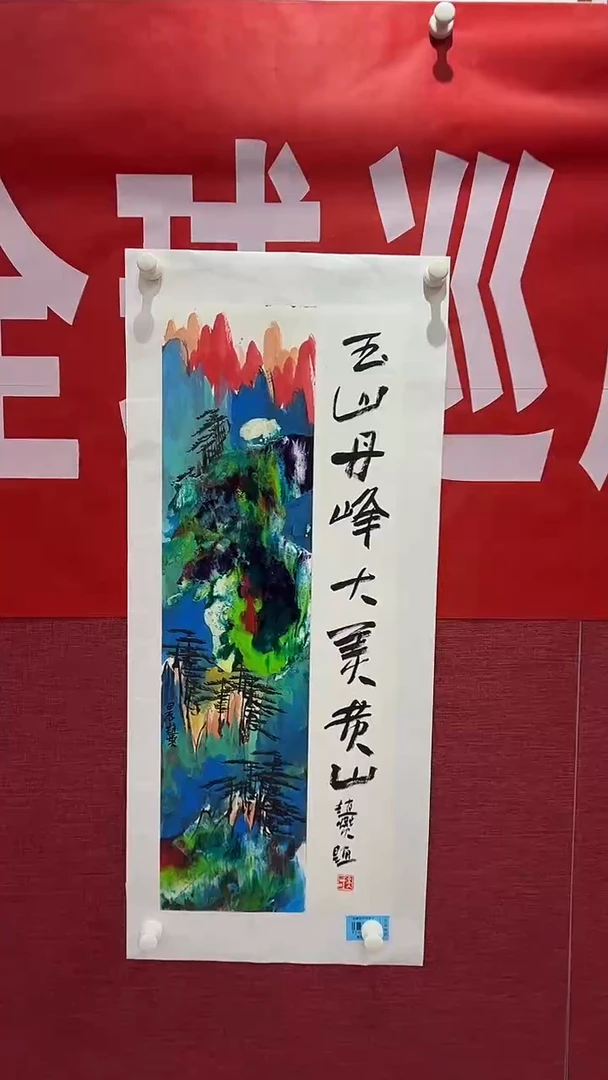 全球巡
玉山丹峰大美黄山